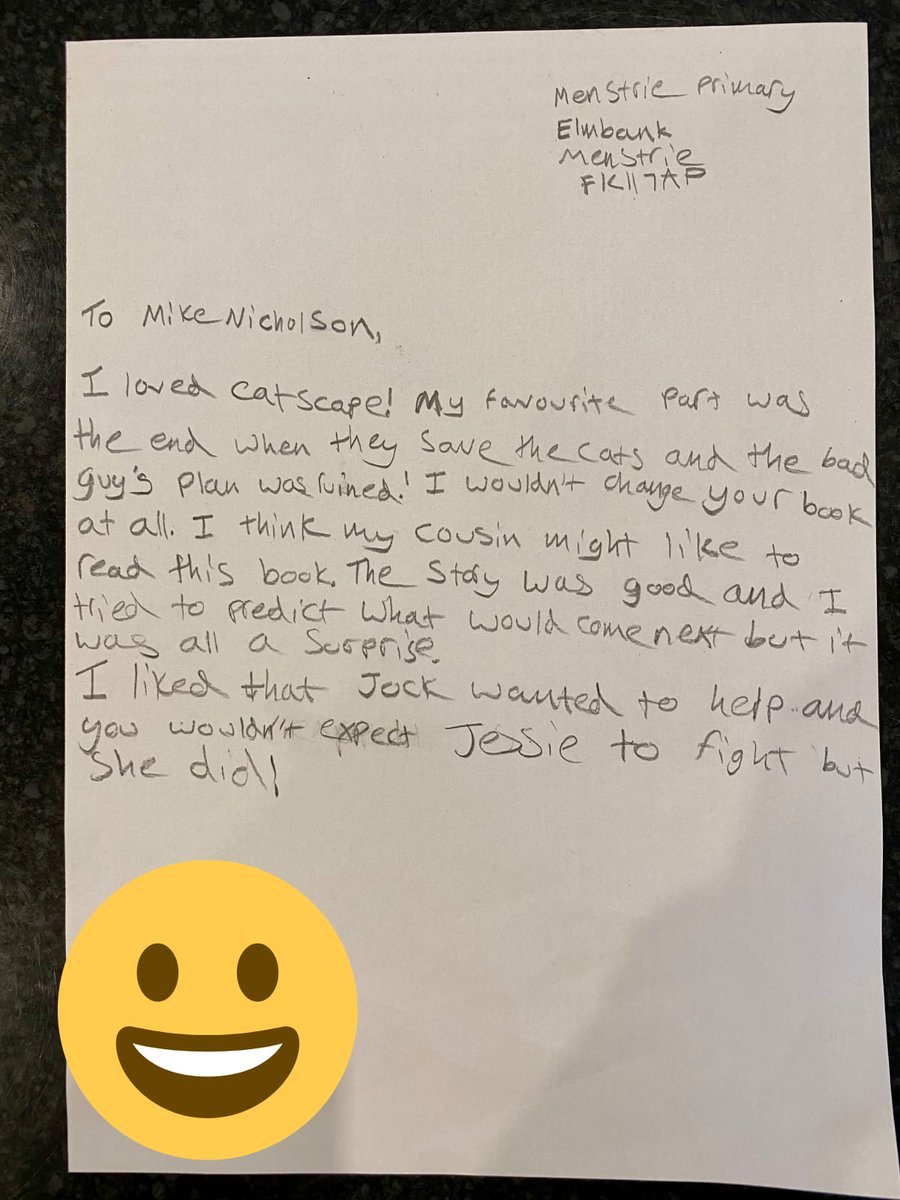 Menstrie Primary
Elmbank
Menstrie
FK11 7AP
To Mike Nicholson,
I loved catscape! My favourite part was
the end when they save the cats and the bad
guy's plan was ruined! I wouldn't change your book
at all. I think my cousin might like to
read this book. The story was good and I
tried to predict what would come next but it
was all a surprise.
I liked that Jock wanted to help and
you wouldn't expect Jessie to fight but
she did!